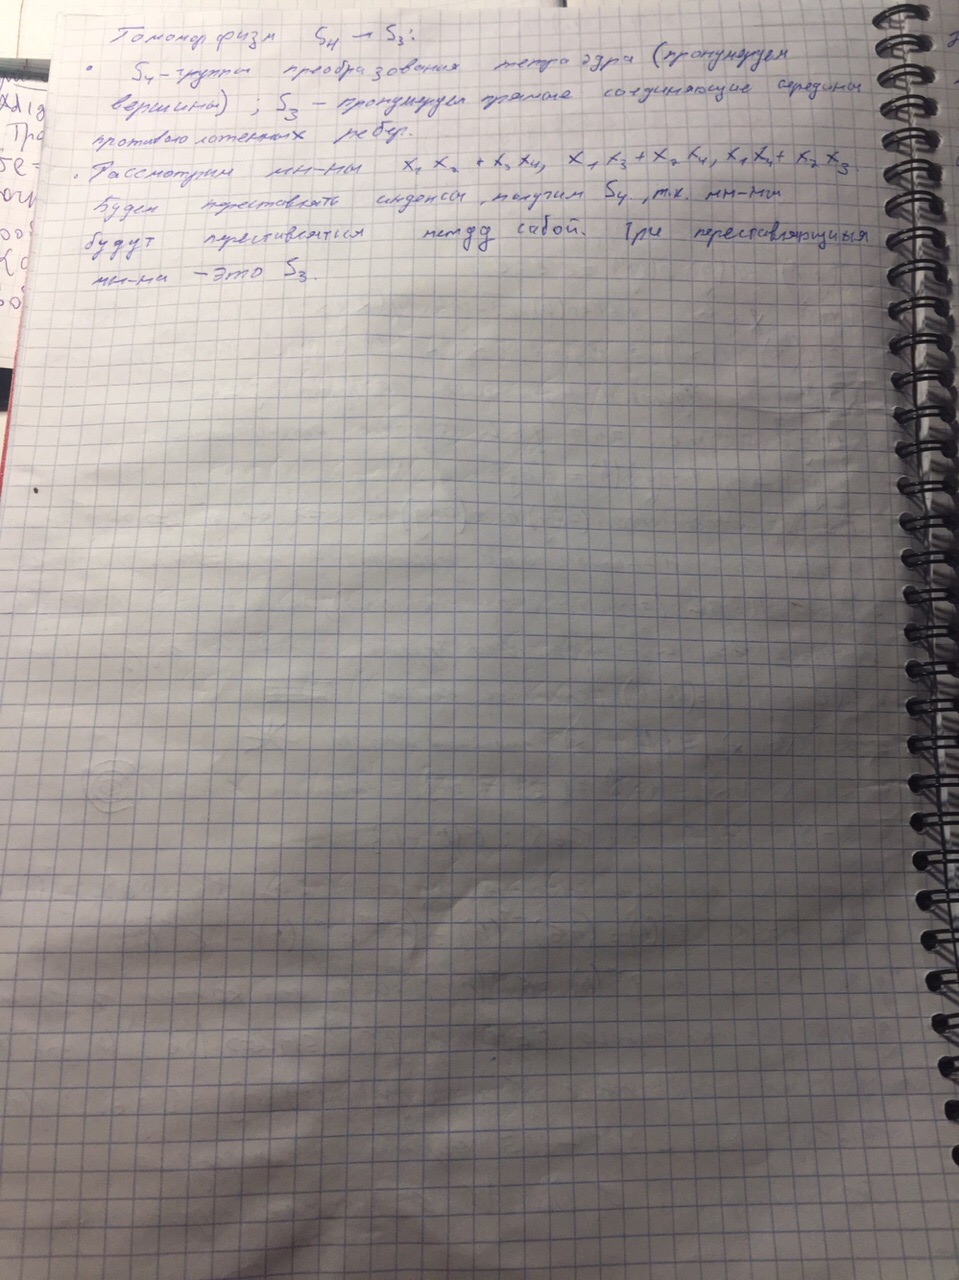 Гомоморфизм S₄ → S₃:
• S₄-группа преобразования тетраэдра (пронумеруем
вершины) ; S₃ – пронумеруем прямые соединяющие середины
противоположенных ребер.
• Рассмотрим мн-ны x₁x₂ + x₃x₄, x₁x₃ + x₂x₄, x₁x₄ + x₂x₃.
Будем переставлять индексы, получим S₄, т.к. мн-ны
будут переставляться между собой. Три переставляющихся
мн-на – это S₃.